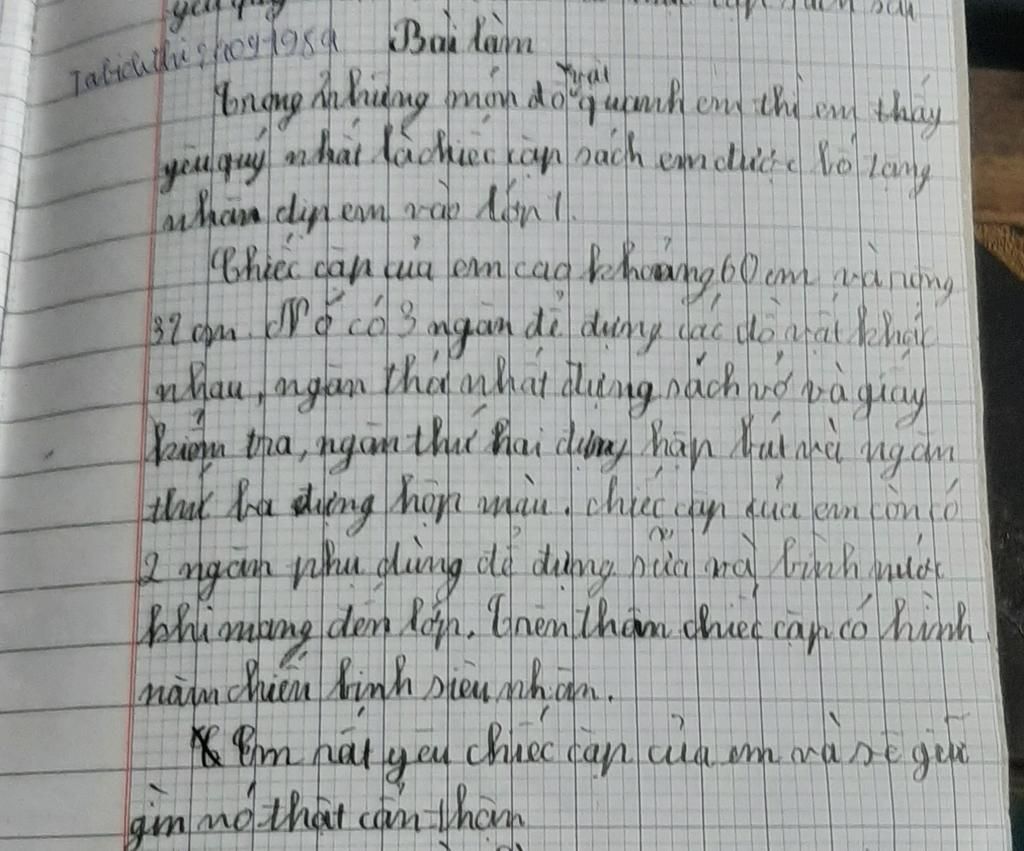 yêu quý
Bài làm
Trong những món đồ vật quanh em thì em thấy
yêu quý nhất là chiếc cặp sách em được bố tặng
nhân dịp em vào lớp 1.
Chiếc cặp của em cao khoảng 60 cm và rộng
32 cm. Nó có 3 ngăn để đựng các đồ vật khác
nhau, ngăn thứ nhất đựng sách vở và giấy
kiểm tra, ngăn thứ hai đựng hộp bút và ngăn
thứ ba đựng hộp màu. chiếc cặp của em còn có
2 ngăn phụ dùng để đựng sữa và bình nước
khi mang đến lớp. Trên thân chiếc cặp có hình
năm chiến binh siêu nhân.
Em rất yêu chiếc cặp của em và sẽ giữ
gìn nó thật cẩn thận